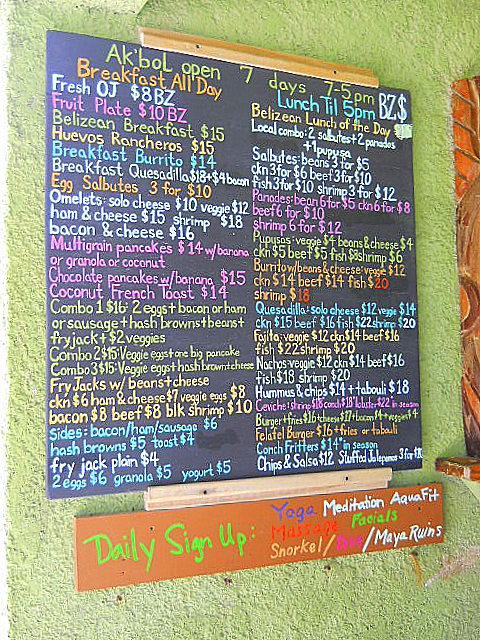 Ak'bol open 7 days 7-5pm
Breakfast All Day
Fresh OJ $8BZ
Fruit Plate $10BZ
Belizean Breakfast $15
Huevos Rancheros $15
Breakfast Burrito $14
Breakfast Quesadilla $18+$4 bacon
Egg Salbutes 3 for $10
Omelets: solo cheese $10 veggie $12
ham & cheese $15 shrimp $18
bacon & cheese $16
Multigrain pancakes $14 w/banana
or granola or coconut
Chocolate pancakes w/banana $15
Coconut French Toast $14
Combo 1 $16: 2 eggs + bacon or ham
or sausage + hash browns + beans +
fryjack + $2 veggies
Combo 2 $15: Veggie eggs + one big pancake
Combo 3 $15: Veggie eggs + hash brown + cheese
Fry Jacks w/ beans + cheese
ckn $6 ham & cheese $7 veggie eggs $8
bacon $8 beef $8 blk shrimp $10
Sides: bacon/ham/sausage $6
hash browns $5 toast $4
fry jack plain $4
2 eggs $6 granola $5 yogurt $5
Lunch Til 5pm BZ$
Belizean Lunch of the Day
Local combo: 2 salbutes + 2 panades
+ 1 pupusa
Salbutes: beans 3 for $5
ckn 3 for $6 beef 3 for $10
fish 3 for $10 shrimp 3 for $12
Panades: bean 6 for $5 ckn 6 for $8
beef 6 for $10
shrimp 6 for $12
Pupusas: veggie $4 beans & cheese $4
ckn $5 beef $5 fish $8 shrimp $6
Burrito w/beans & cheese: veggie $12
ckn $14 beef $14 fish $20
shrimp $18
Quesadilla: solo cheese $12 veggie $14
ckn $15 beef $16 fish $22 shrimp $20
Fajita: veggie $12 ckn $14 beef $16
fish $22 shrimp $20
Nachos: veggie $12 ckn $14 beef $16
fish $18 shrimp $20
Hummus & chips $14 + tabouli $18
Ceviche: shrimp $16 conch $18 lobster $22 in season
Burger + fries $16 + cheese $17 + bacon $4 + veggies $4
Felafel Burger $16 + fries or tabouli
Conch Fritters $14 in season
Chips & Salsa $12 Stuffed Jalapenos 3 for $10
Daily Sign Up:
Yoga Meditation AquaFit
Massage Facials
Snorkel/Dive/Maya Ruins